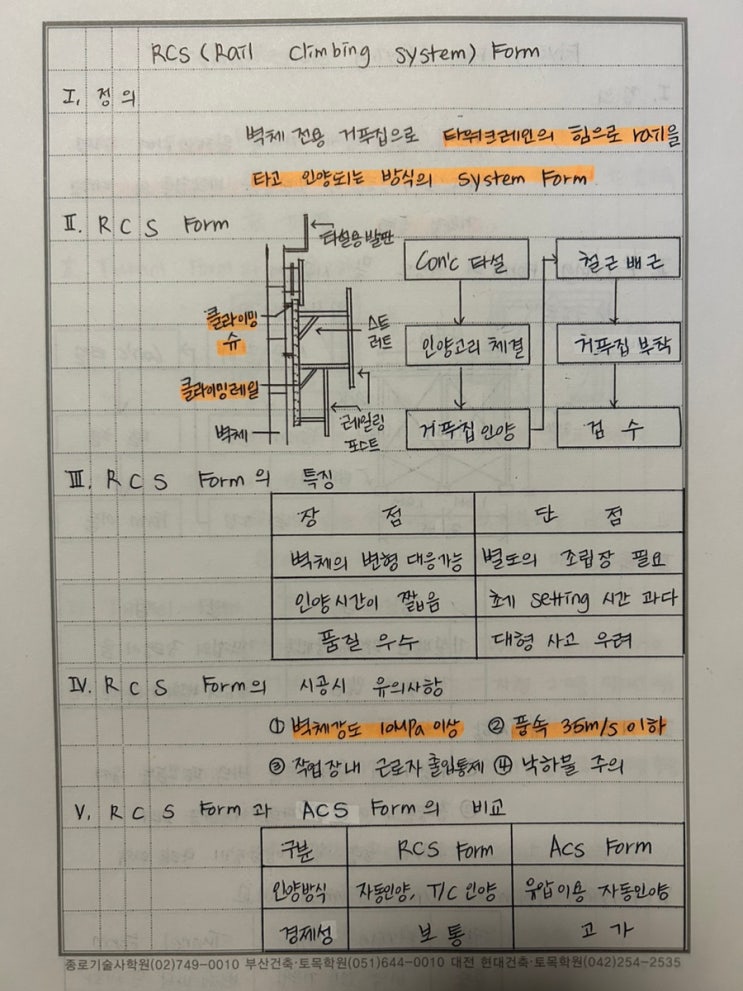 RCS (Rail Climbing System) Form
I. 정의
벽체 전용 거푸집으로 타워크레인의 힘으로 rail을
타고 인양되는 방식의 System Form
II. RCS Form
타설용발판
클라이밍
슈
스트
러트
클라이밍레일
벽체
레일링
포스트
Con'c 타설
인양고리 체결
거푸집인양
철근배근
거푸집 부착
검수
III. RCS Form의 특징
장점 단점
벽체의 변형 대응가능 별도의 조립장 필요
인양시간이 짧음 초기 Setting 시간 과다
품질 우수 대형 사고 우려
IV. RCS Form의 시공시 유의사항
① 벽체강도 10MPa 이상 ② 풍속 35m/s 이하
③ 작업장내 근로자 출입통제 ④ 낙하물 주의
V. RCS Form과 ACS Form의 비교
구분 RCS Form ACS Form
인양방식 자동인양, T/C 인양 유압이용 자동인양
경제성 보통 고가
종로기술사학원(02)749-0010 부산건축·토목학원(051)644-0010 대전 현대건축·토목학원(042)254-2535